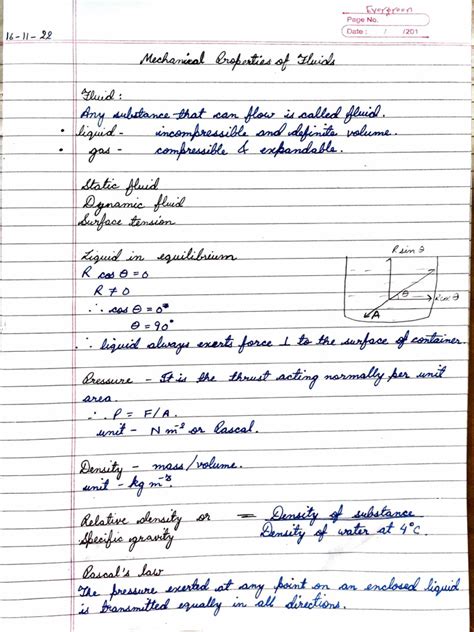 Evergreen
Page No.
Date : / /201
16-11-22
Mechanical Properties of Fluids
Fluid :
Any substance that can flow is called fluid.
• liquid - incompressible and definite volume.
• gas - compressible & expandable.
Static fluid
Dynamic fluid
Surface tension
Liquid in equilibrium
R sin θ
R cos θ = 0
R ≠ 0
θ
R cos θ
∴ cos θ = 0°
A
θ = 90°
∴ liquid always exerts force ⊥ to the surface of container.
Pressure - It is the thrust acting normally per unit
area.
∴ P = F/A.
unit - N m⁻² or Pascal.
Density - mass/volume.
unit - kg m⁻³.
Relative density or = Density of substance
Specific gravity Density of water at 4°C.
Pascal's law
The pressure exerted at any point on an enclosed liquid
is transmitted equally in all directions.